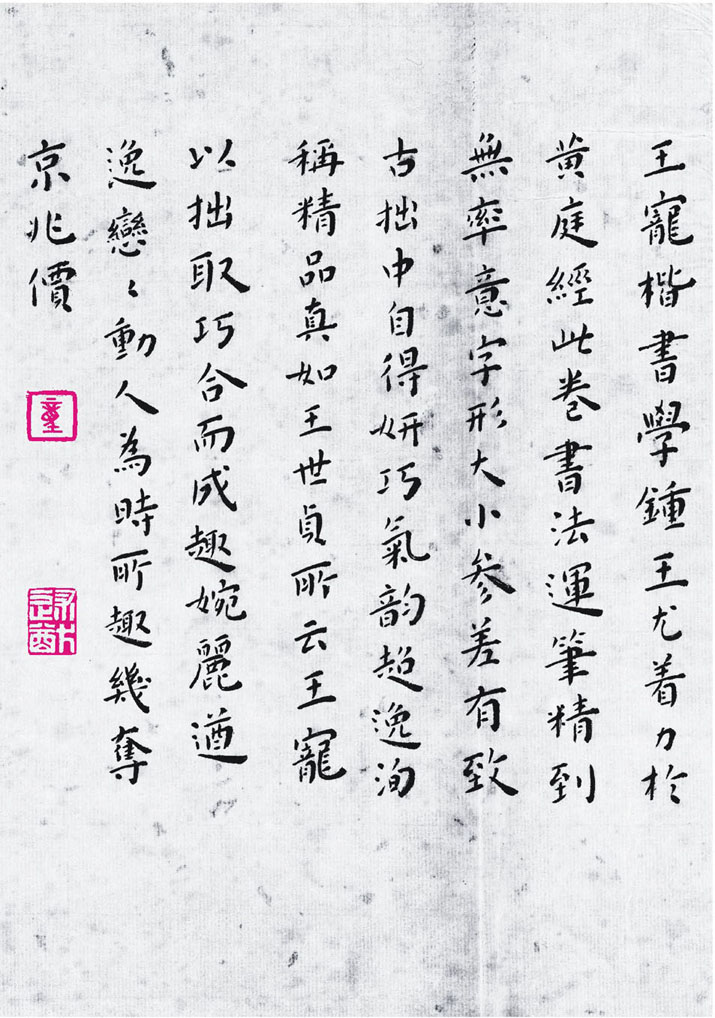 王寵楷書學鍾王尤着力於
黄庭經此卷書法運筆精到
無率意字形大小參差有致
古拙中自得妍巧氣韵超逸洵
稱精品真如王世貞所云王寵
以拙取巧合而成趣婉麗遒
逸戀〻動人為時所趣幾奪
京兆價